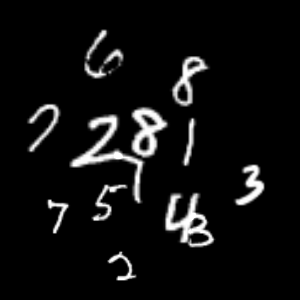 6
8
7 2 8 1
7 5 7 4 3 3
2